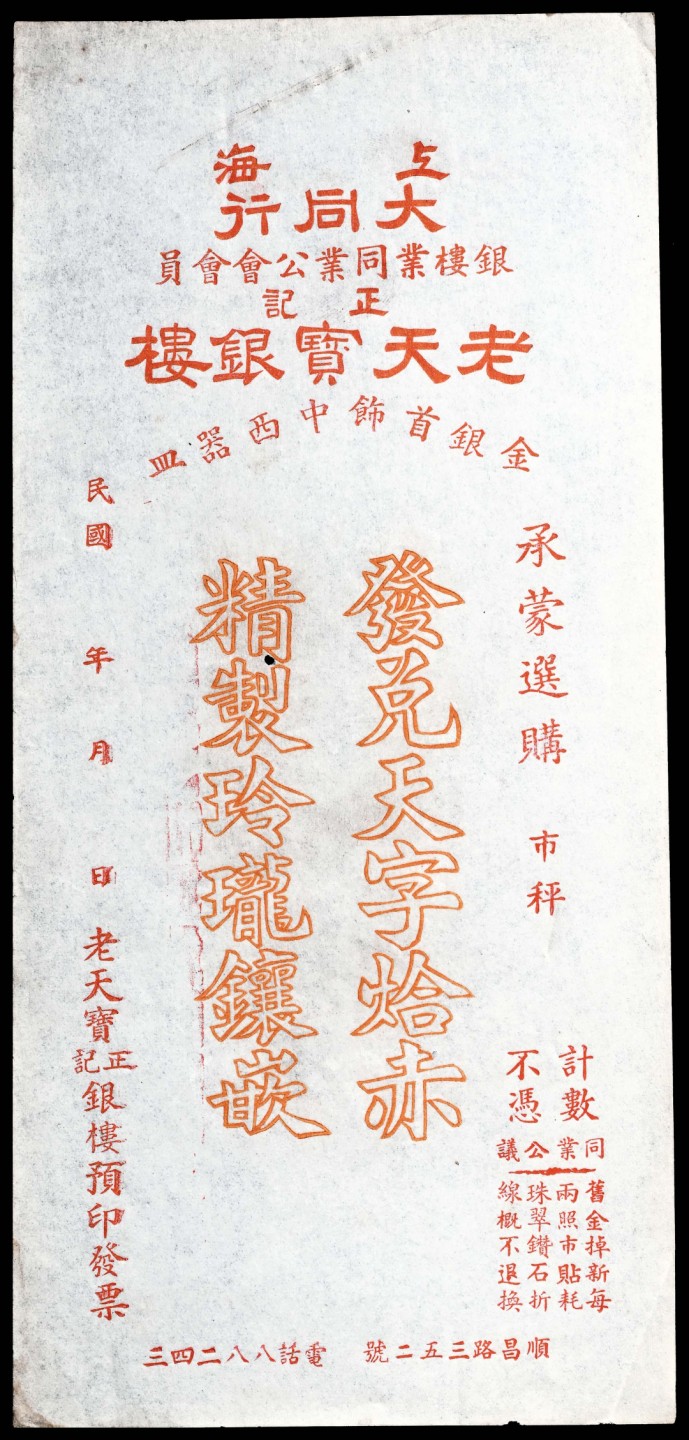 上海
大同行
銀樓業同業公會會員
正記
老天寶銀樓
金銀首飾中西器皿
承蒙選購 市秤
計數
不憑
同業公議
舊金掉新每
兩照市貼耗
珠翠鑽石折
線概不退換
發兌天字烚赤
精製玲瓏鑲嵌
民國 年 月 日
老天寶正記銀樓預印發票
順昌路三五二號 電話八八二四三